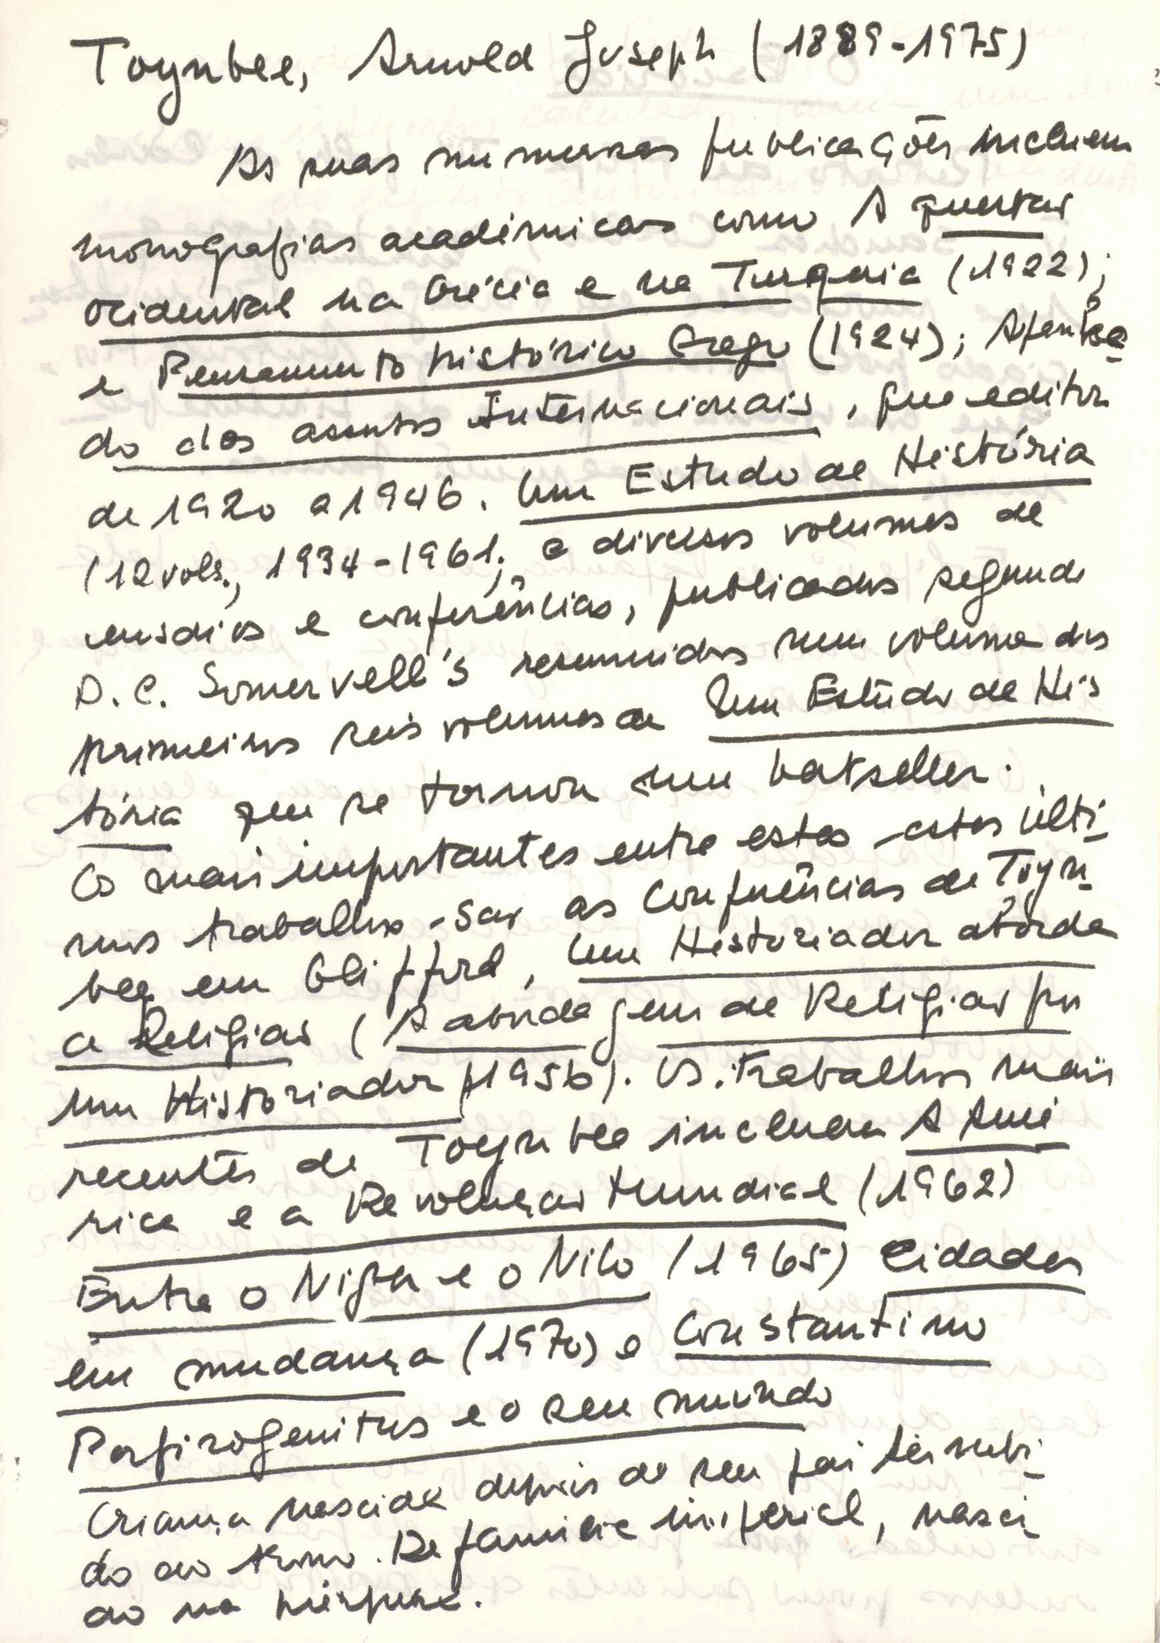 Toynbee, Arnold Joseph (1889-1975)
As suas numerosas publicações incluem
monografias académicas como A questão
ocidental na Grécia e na Turquia (1922);
e Pensamento histórico Grego (1924);
do dos assuntos Internacionais, que editou
de 1920 a 1946. Um Estudo de História
(12 vols., 1934-1961; e diversos volumes de
ensaios e conferências, publicados segundo
D. C. Somervell's resumidos num volume dos
primeiros seis volumes de Um Estudo de His
tória que se tornou num batseller.
Os mais importantes entre estes estes últi-
mos trabalhos - são as Conferências de Toyn-
bee em Gliffford, Um Historiador aborda
a Religião (A abordagem de Religião por
um Historiador (1956). Os trabalhos mais
recentes de Toynbee incluem A Amé
rica e a Revolução Mundial (1962)
Entre o Niger e o Nilo (1965) Cidades
em mudança (1970) e Constantino
Porfirogenitus e o seu mundo
Criança nascida depois de seu pai ter subi-
do ao trono. De familia imperial, nasci
do na púrpura.